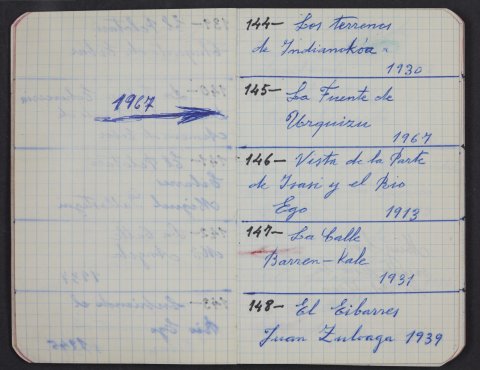 1967
144- Los terrenos
de Indianokóa.
1930
145- La Fuente de
Urquizu
1967
146- Vista de la Parte
de Isasi y el Rio
Ego 1913
147- La Calle
Barren-Kale
1931
148- El Eibarres
Juan Zuloaga 1939